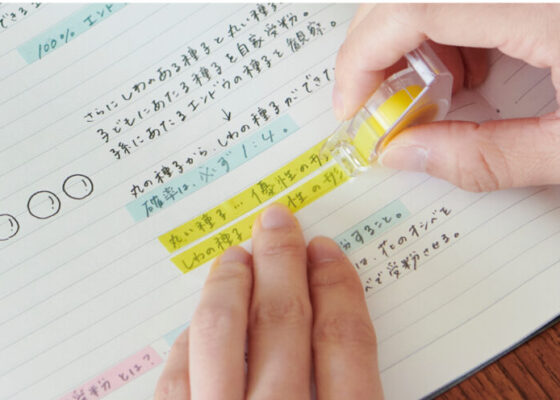 できるエン
100% エンド
さらにしわのある種子と丸い種子
子どもにあたる種子を自家受粉。
孫にあたるエンドウの種子を観察。
↓
丸の種子から、しわの種子ができた
確率は、必ず1:4。
丸い種子… 優性の
しわの種子… 性の
すること。
は、花のオシベを
べで受粉させる。
受粉とは?